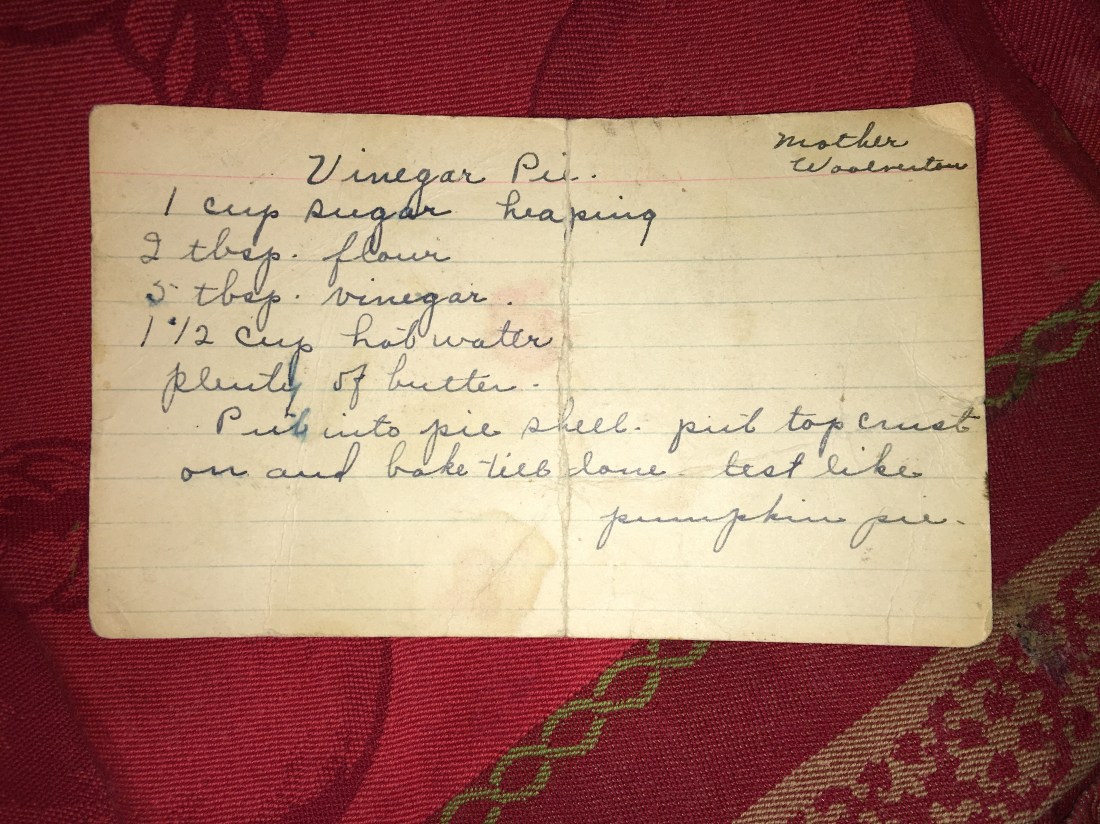 Mother
Woolverton
Vinegar Pie.
1 cup sugar heaping
2 tbsp. flour
5 tbsp. vinegar.
1 1/2 cup hot water
plenty of butter.
Put into pie shell. put top crust
on and bake till done. test like
pumpkin pie.